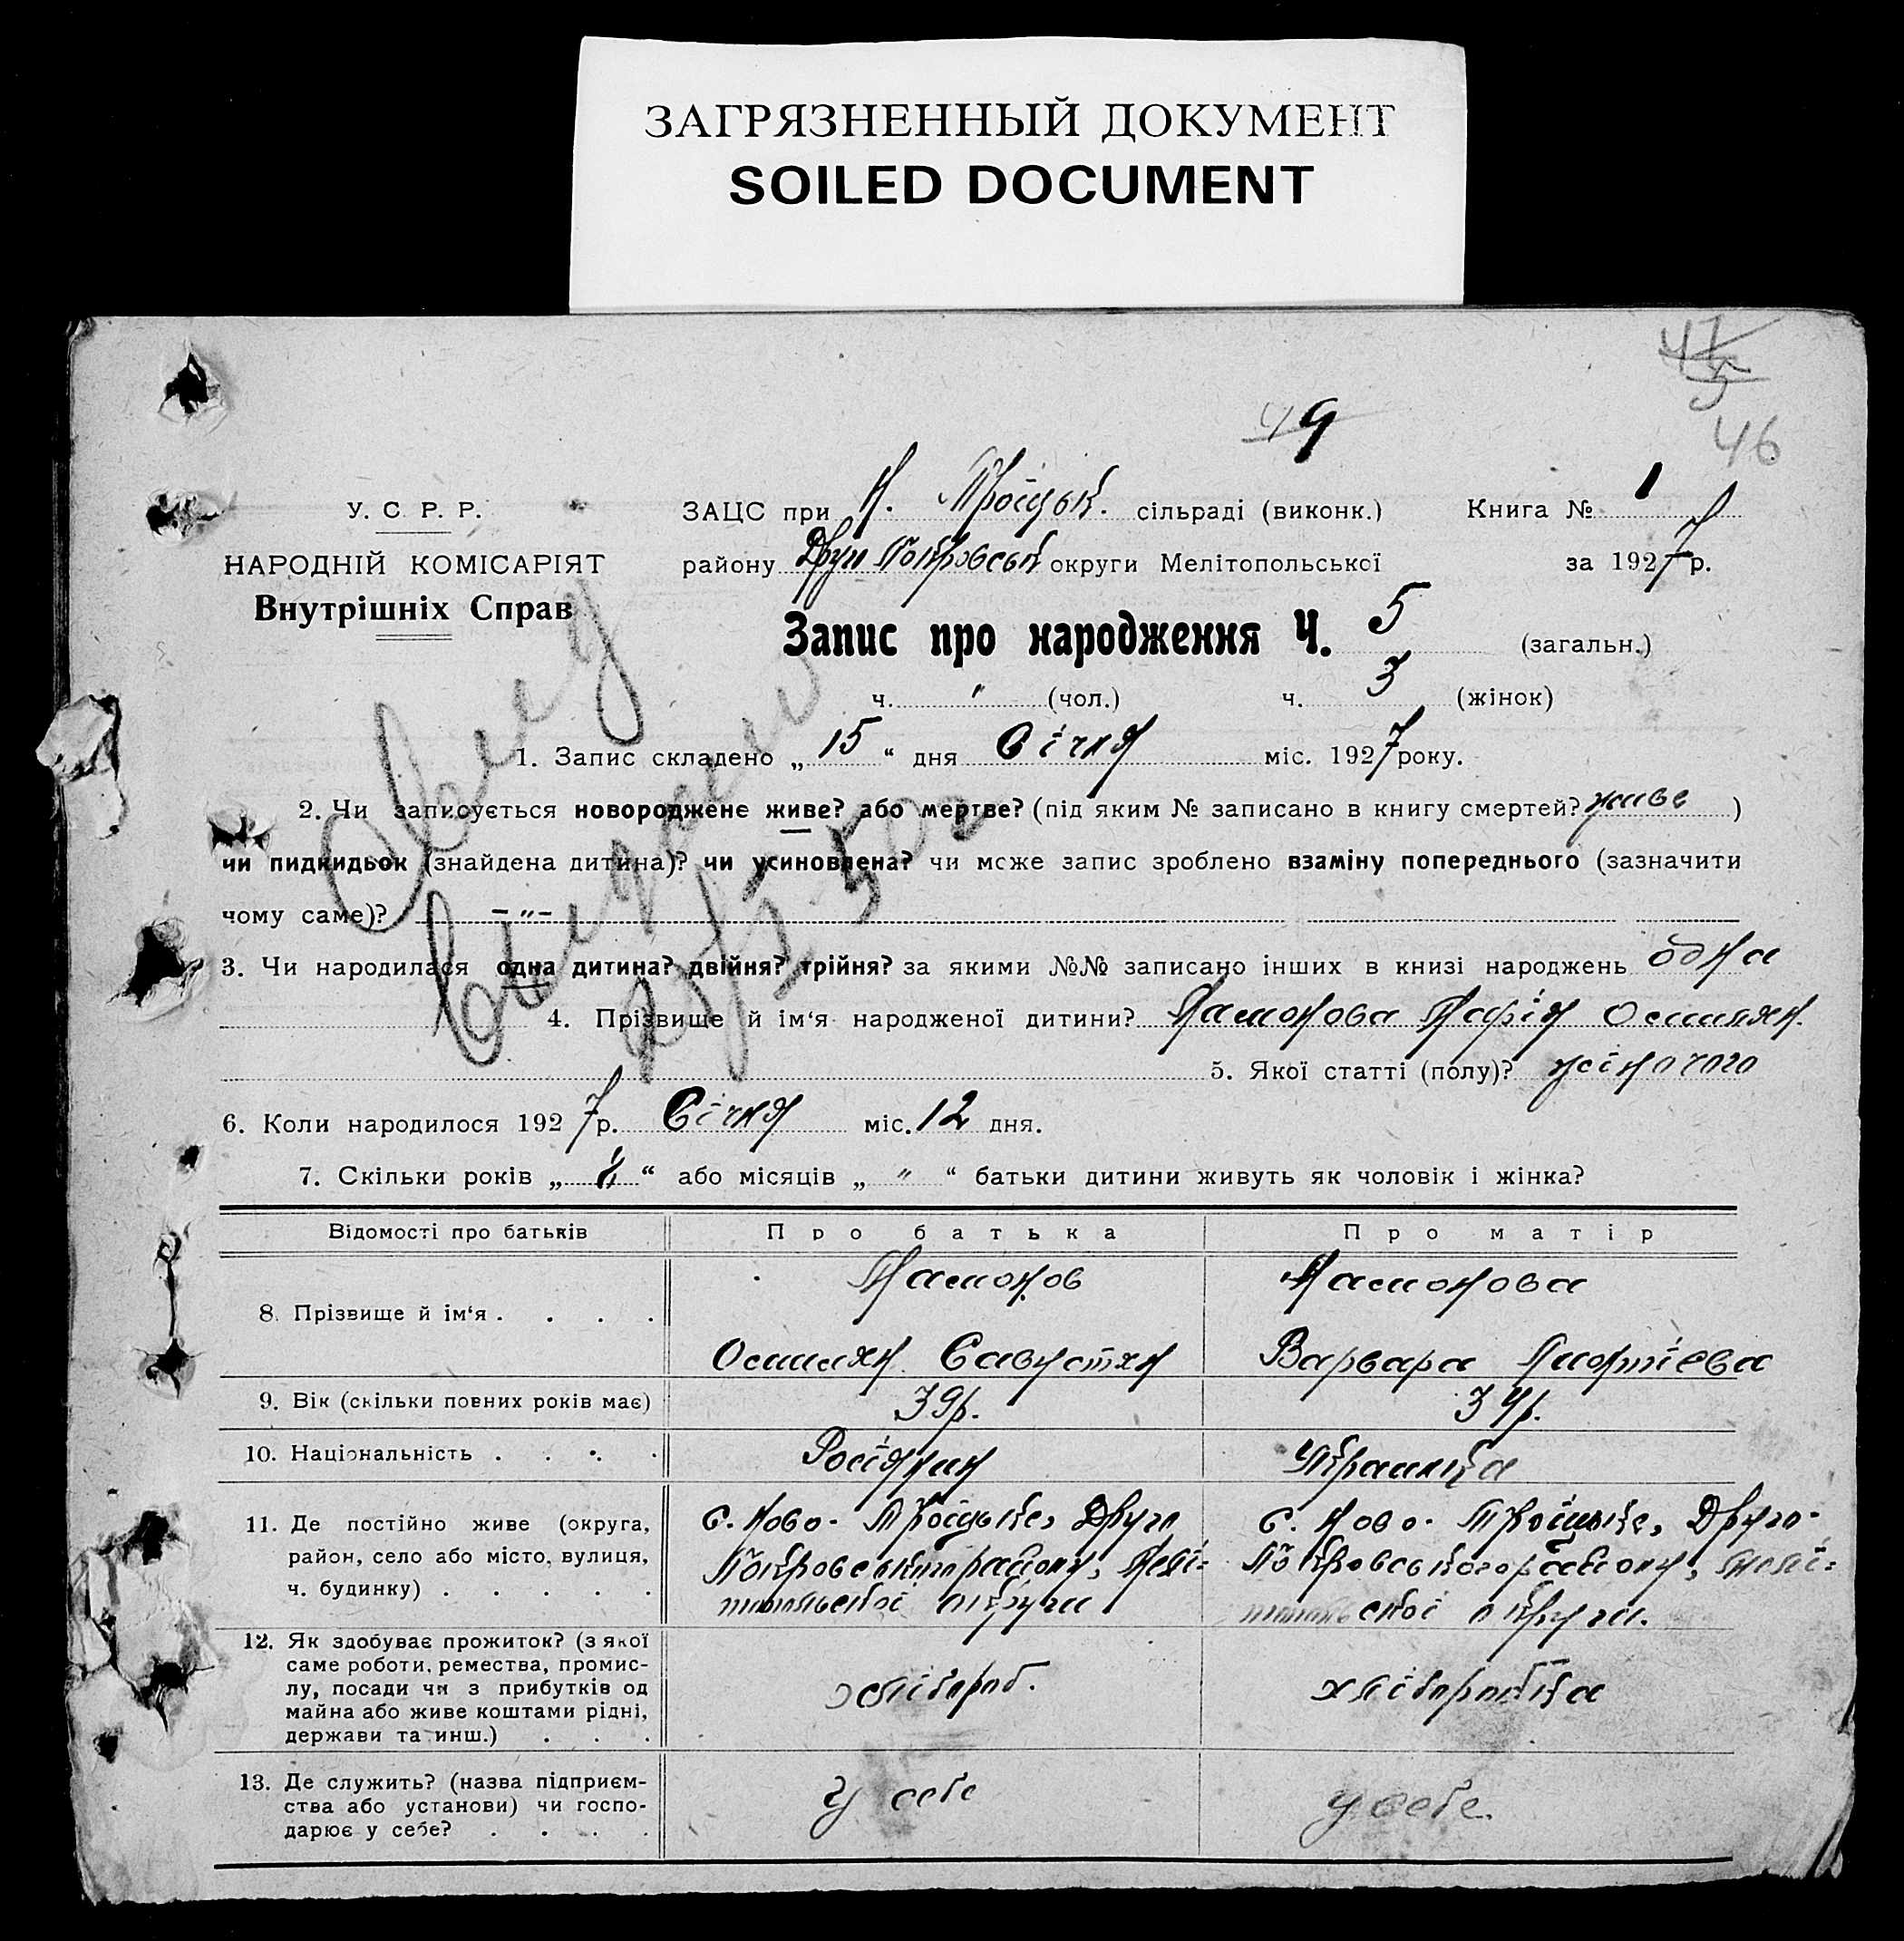 ЗАГРЯЗНЕННЫЙ ДОКУМЕНТ
SOILED DOCUMENT
46
У. С. Р. Р.
НАРОДНІЙ КОМІСАРІЯТ
Внутрішніх Справ
ЗАЦС при Н. Троіцьк. сільраді (виконк.) Книга № 1
району Друг Покровськ округи Мелітопольської за 1927 р.
Запис про народження Ч. 5 (загальн.)
ч. " (чол.) ч. 3 (жінок)
1. Запис складено „ 15 “ дня Січня міс. 1927 року.
2. Чи записується новороджене живе? або мертве? (під яким № записано в книгу смертей? живе )
чи пидкидьок (знайдена дитина)? чи усиновлена? чи може запис зроблено взаміну попереднього (зазначити
чому саме)? - " -
3. Чи народилася одна дитина? двійня? трійня? за якими №№ записано інших в книзі народжень одна
4. Прізвище й ім‘я народженої дитини?
5. Якої статті (полу)? жіночого
6. Коли народилося 1927 р. Січня міс. 12 дня.
7. Скільки років „ “ або місяців „ " “ батьки дитини живуть як чоловік і жінка?
Відомості про батьків Про батька Про матір
8. Прізвище й ім‘я . . . .
Варвара
9. Вік (скільки повних років має) 39р. 34р.
10. Національність . . . . Росіянин Украинка
11. Де постійно живе (округа, район, село або місто, вулиця, ч. будинку) . . . . .
с. Ново-Троіцьке, Друго
Покровського району, Мелі=
топольскої округи
с. Ново-Троіцьке, Друго-
Покровського району, Мелі=
топольскої округи.
12. Як здобуває прожиток? (з якої
саме роботи, ремества, промис-
лу, посади чи з прибутків од
майна або живе коштами рідні,
держави та инш.) . . .
хлібороб. хліборобка
13. Де служить? (назва підприєм-
ства або установи) чи госпо-
дарює у себе? . . . .
у себе у себе.